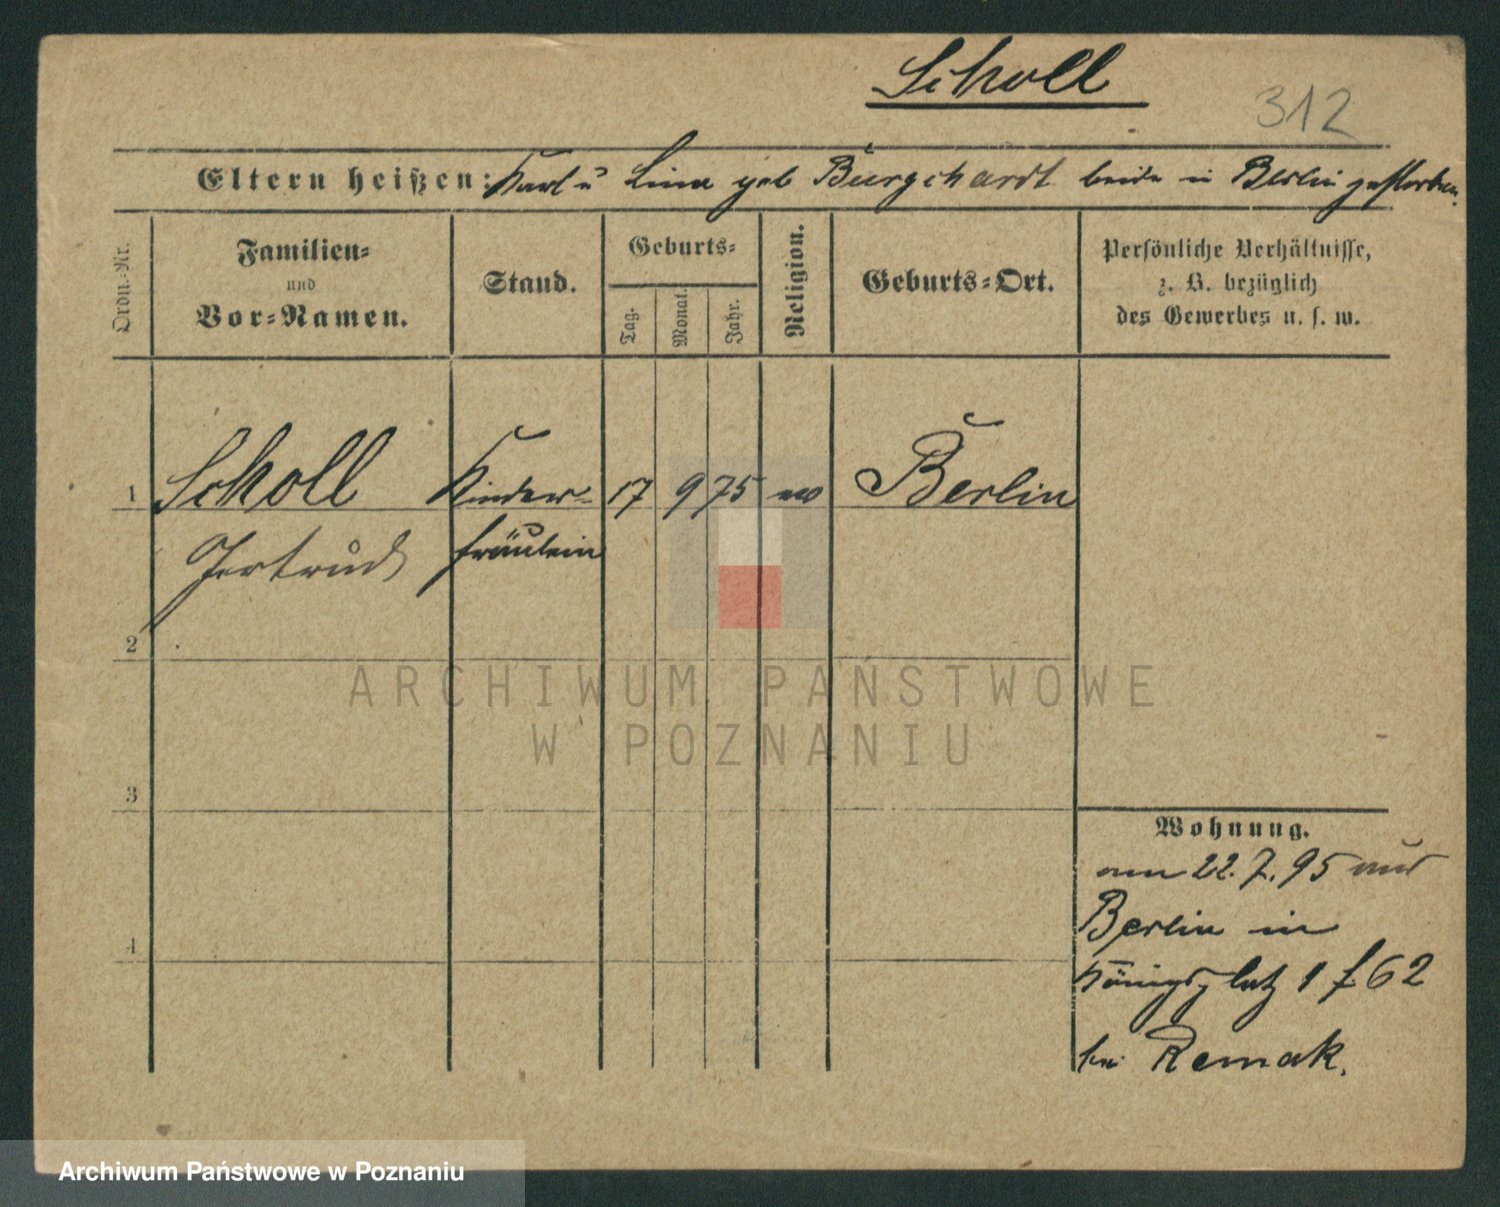 Scholl
312
Eltern heißen: Karl u Lina geb Burghardt beide in Berlin gestorben.
Ordn.-Nr.
Familien-
und
Vor-Namen.
Stand.
Geburts-
Tag.
Monat.
Jahr.
Religion.
Geburts-Ort.
Persönliche Verhältnisse,
z. B. bezüglich
des Gewerbes u. s. w.
1 Scholl Kinder- 17 9 75 ev Berlin
Gertrud fräulein
2
3
4
Wohnung.
am 22.7.95 aus
Berlin in
Königsplatz 1 f. 62
bei Remak.
ARCHIWUM PAŃSTWOWE
W POZNANIU
Archiwum Państwowe w Poznaniu